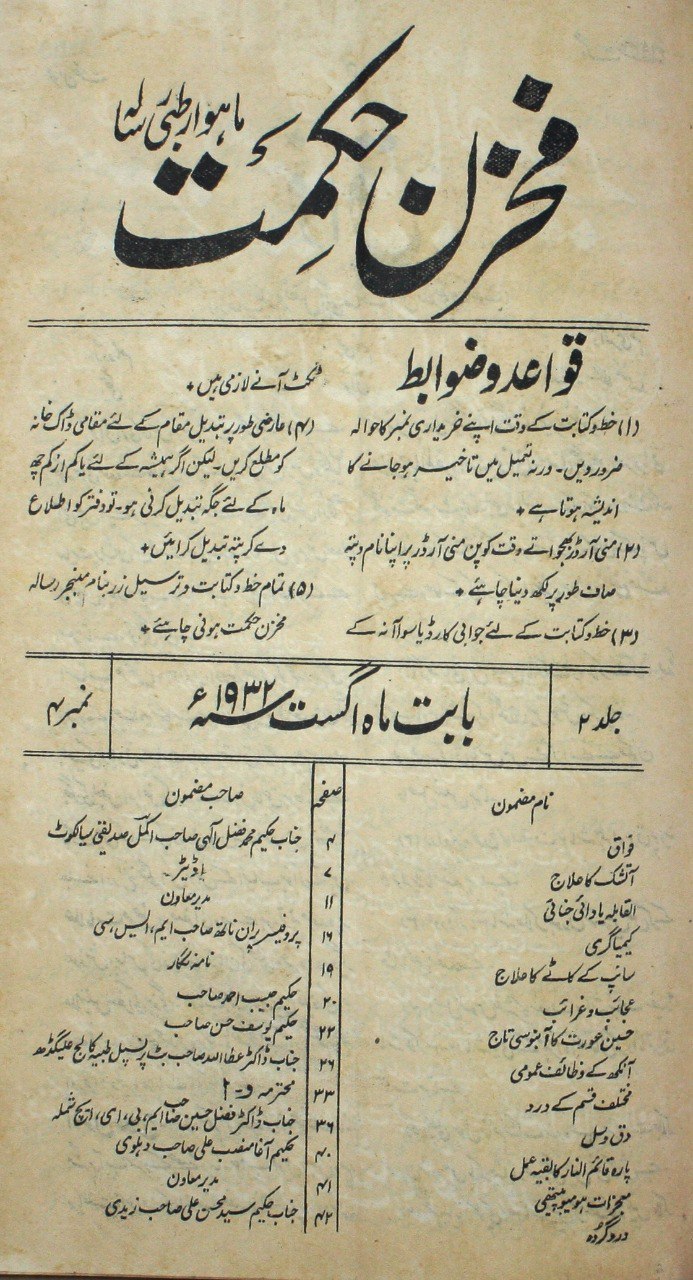 ماہوار طبی رسالہ
مخزن حکمت
قواعد و ضوابط
(۱) خط و کتابت کے وقت اپنے خریداری نمبر کا حوالہ
ضرور دیں۔ ورنہ تعمیل میں تاخیر ہو جانے کا
اندیشہ ہوتا ہے *
(۲) منی آرڈر بھجواتے وقت کوپن منی آرڈر پر اپنا نام و پتہ
صاف طور پر لکھ دینا چاہئے *
(۳) خط و کتابت کے لئے جوابی کارڈ یا سوا آنہ کے
ٹکٹ آنے لازمی ہیں *
(۴) عارضی طور پر تبدیل مقام کے لئے مقامی ڈاک خانہ
کو مطلع کریں۔ لیکن اگر ہمیشہ کے لئے یا کم از کم چھ
ماہ کے لئے جگہ تبدیل کرنی ہو۔ تو دفتر کو اطلاع
دے کر پتہ تبدیل کرائیں *
(۵) تمام خط و کتابت و ترسیل زر بنام مینجر رسالہ
مخزن حکمت ہونی چاہئے *
جلد ۲ بابت ماہ اگست سنہ ۱۹۳۲ء نمبر ۴
نام مضمون صفحہ صاحب مضمون
فواق ۴ جناب حکیم محمد فضل الٰہی صاحب اکمل صدیقی سیالکوٹ
آتشک کا علاج ۷ ایڈیٹر
القابلہ یا دائی جنائی ۱۱ مدیر معاون
کیمیاگری ۱۶ پروفیسر پران ناتھ صاحب ایم، ایس، سی
سانپ کے کاٹے کا علاج ۱۹ نامہ نگار
عجائب و غرائب ۲۰ حکیم حبیب احمد صاحب
حسین عورت کا آبنوسی تاج ۲۲ حکیم یوسف حسن صاحب
آنکھ کے وظائف عمومی ۲۶ جناب ڈاکٹر عطا اللہ صاحب بٹ پرنسپل طبیہ کالج علیگڈھ
مختلف قسم کے درد ۳۳ محترمہ و۔ ا
دق و سل ۳۶ جناب ڈاکٹر فضل حسین صاحب ایم، بی، ای، ایچ شملہ
پارہ قائم النار کا بقیہ عمل ۴۰ حکیم آغا منصب علی صاحب دہلوی
معجزات ہومیوپیتھی ۴۱ مدیر معاون
درد گردہ ۴۲ جناب حکیم سید محسن علی صاحب زیدی